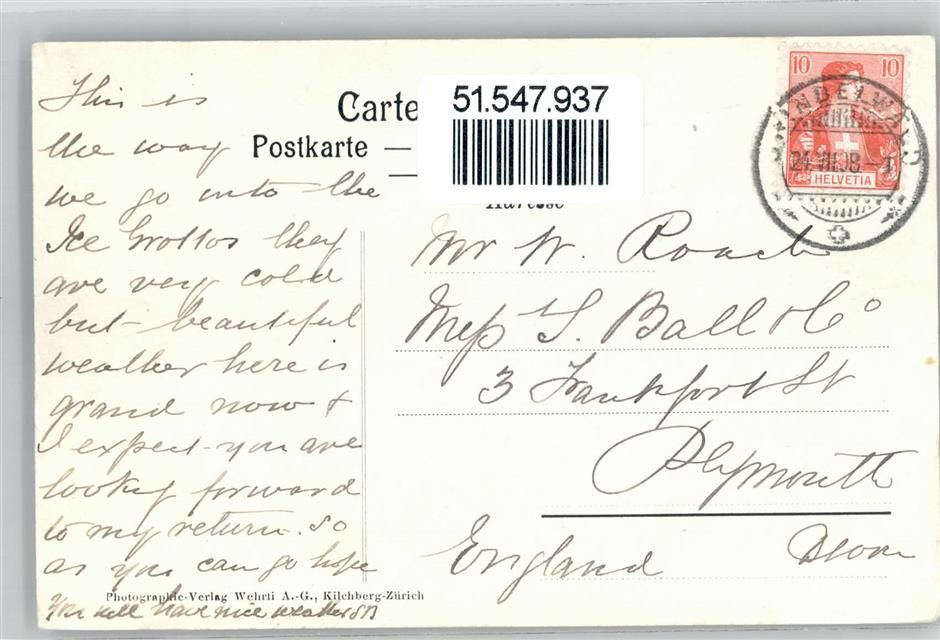 This is
the way
we go into the
Ice Grottos they
are very cold
but - beautiful
weather here is
grand now &
I expect you are
looking forward
to my return. So
as you can go hope
you will have nice weather
Carte
Postkarte —
—
51.547.937
Adresse
10 10
HELVETIA
GRINDELWALD
Mr W. Roach
Mess S. Ball & Co
3 Frankfort St
Plymouth
England Devon
Photographie-Verlag Wehrli A.-G., Kilchberg-Zürich